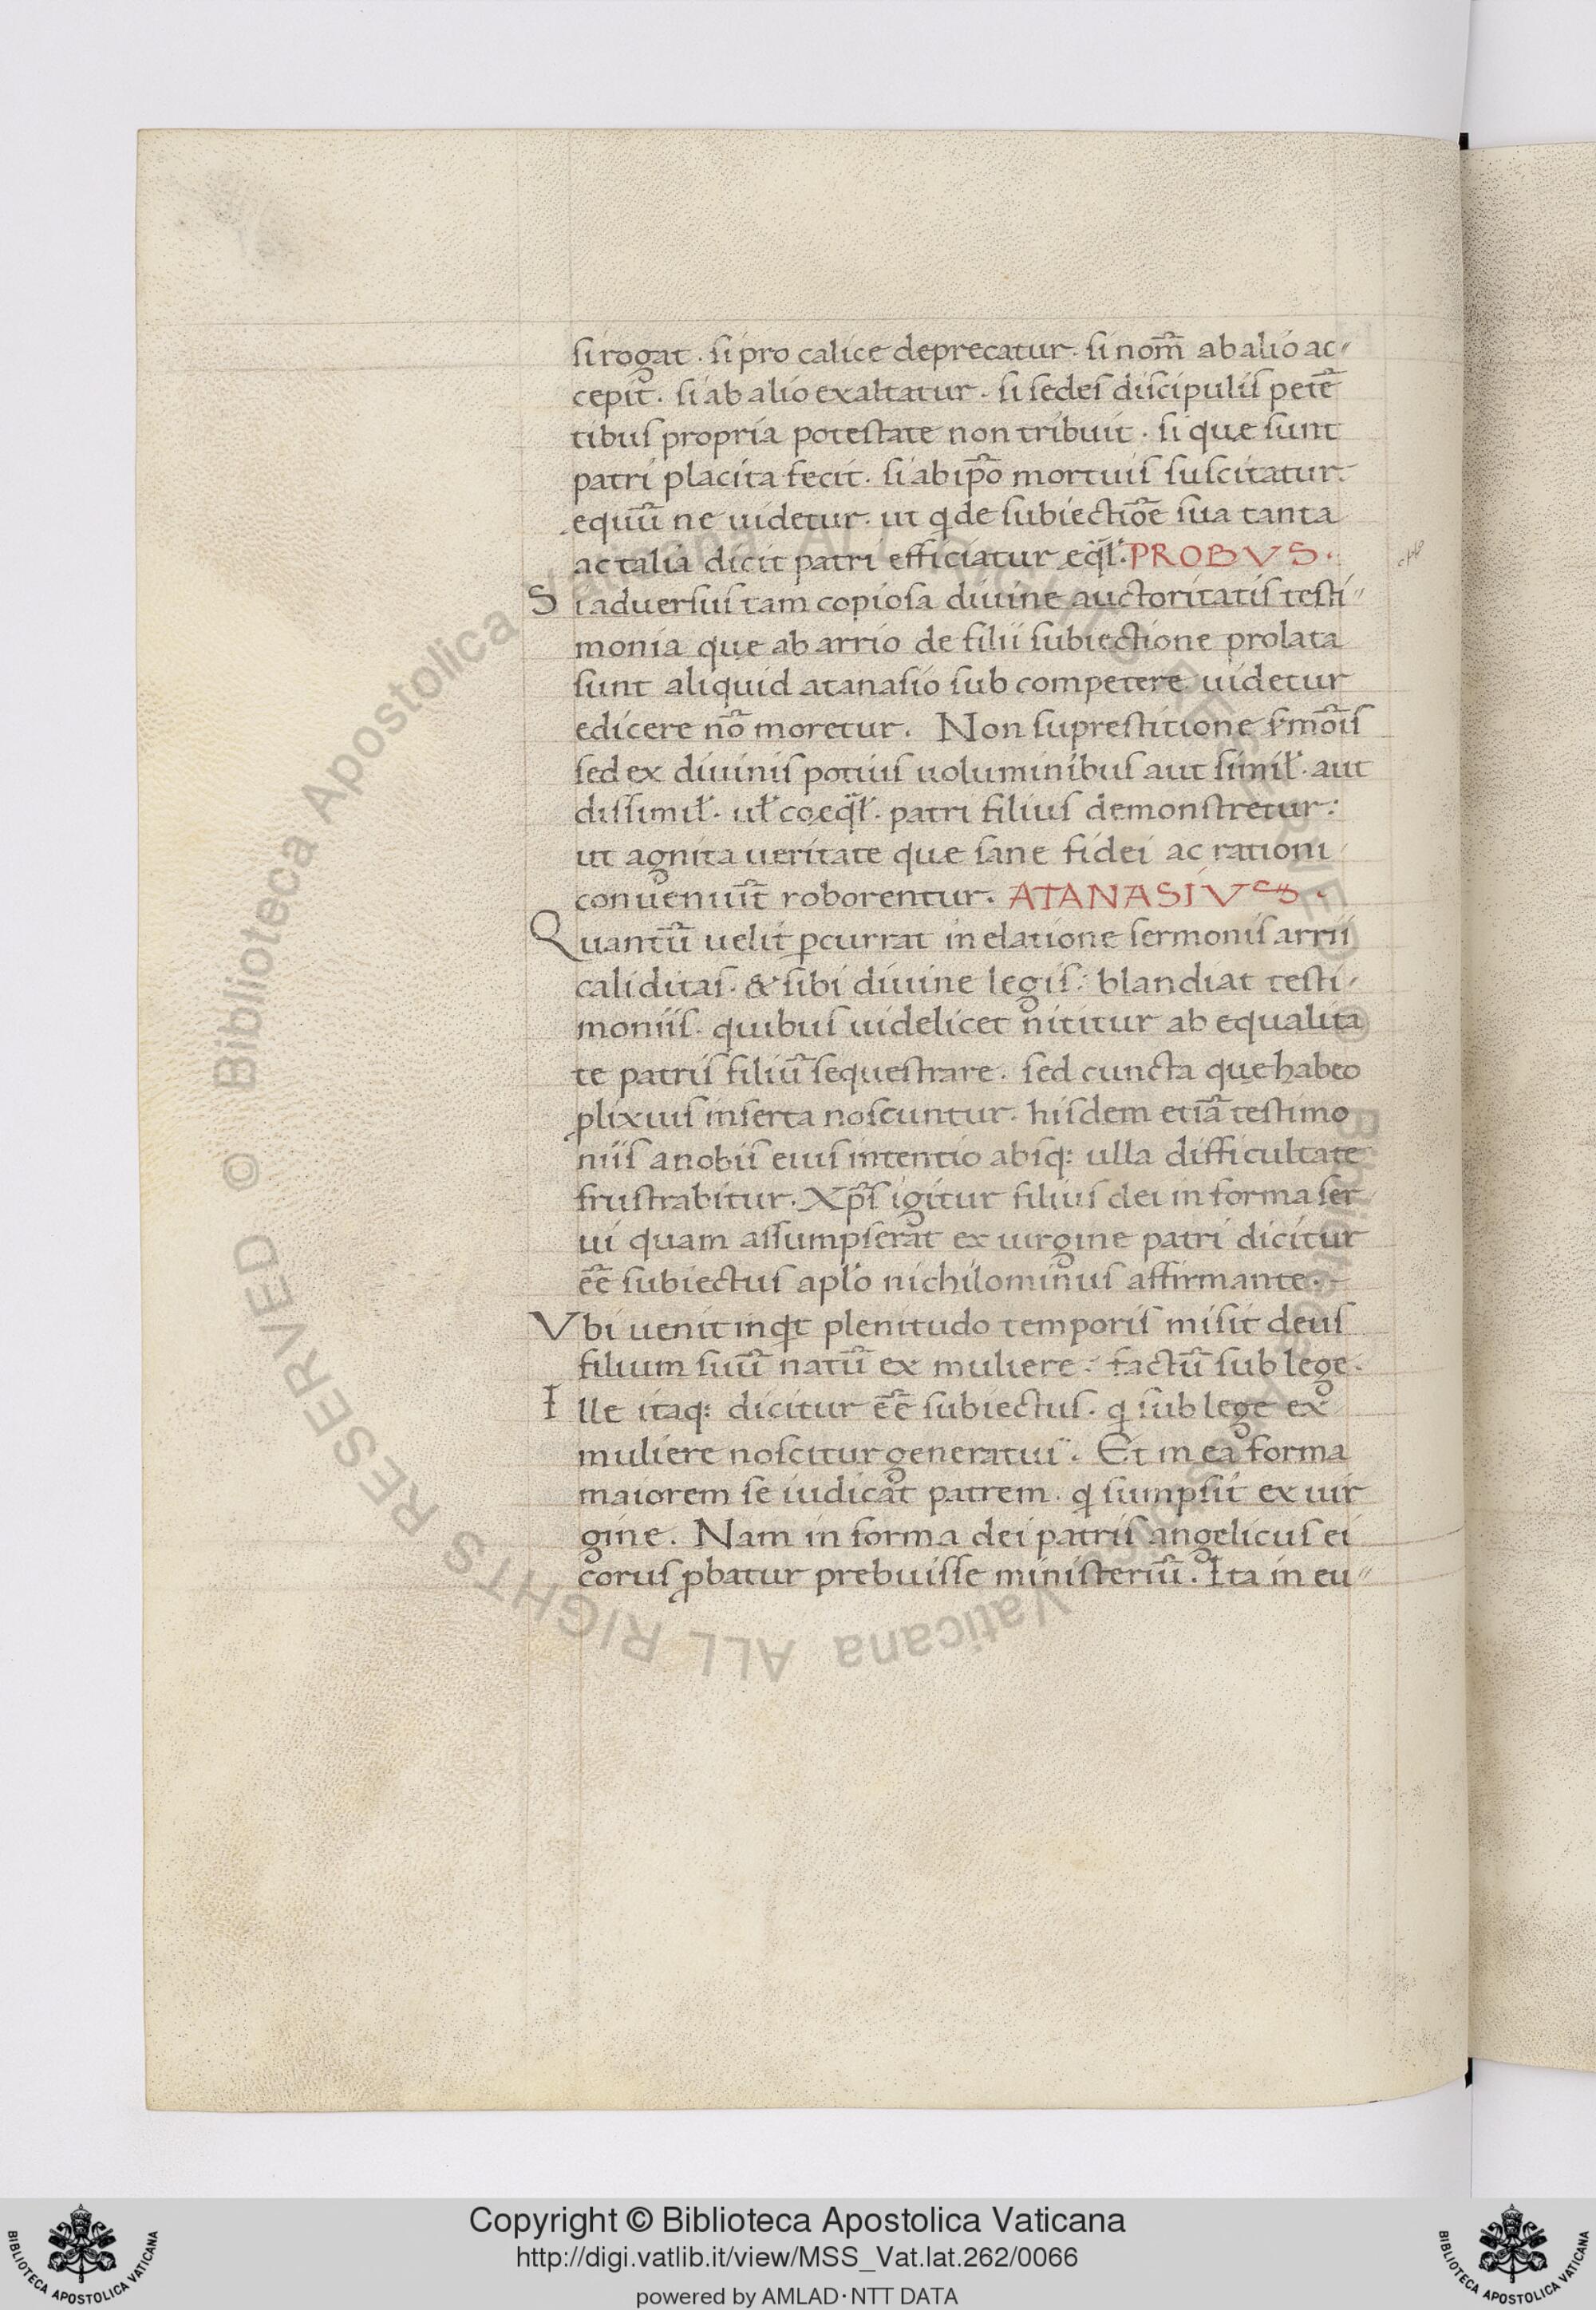 si rogat · si pro calice deprecatur · si nom̄ ab alio ac˶
cepit · si ab alio exaltatur · si sedes discipulis petē
tibus propria potestate non tribuit · si que sunt
patri placita fecit · si ab ip̄o mortuis suscitatur ·
equū ne uidetur · ut q̵ de subiectiōe sua tanta
ac talia dicit patri efficiatur eq̄l' · PROBVS ·
Si aduersus tam copiosa diuine auctoritatis testi˶
monia que ab arrio de filii subiectione prolata
sunt aliquid atanasio sub competere uidetur
edicere nō moretur . Non suprestitione s'mōis
sed ex diuinis potius uoluminibus aut simil' · aut
dissimil' · ul' coeq̄l' · patri filius demonstretur :
ut agnita ueritate que sane fidei ac rationi
conueniūt roborentur . ATANASIVS ·
Quantū uelit ꝑcurrat in elatione sermonis arrii
caliditas · & sibi diuine legis : blandiat testi˶
moniis · quibus uidelicet nititur ab equalita
te patris filiū sequestrare · sed cuncta que habeo
ꝓlixius inserta noscuntur · hisdem etiā testimo
niis a nobis eius intentio absq: ulla difficultate
frustrabitur . Xp̄s igitur filius dei in forma ser
ui quam assumpserat ex uirgine patri dicitur
eē subiectus aplo nichilominus affirmante ·
Vbi uenit inq̵t plenitudo temporis misit deus
filium suū natū ex muliere : factū sub lege ·
Ille itaq: dicitur eē subiectus · q̵ sub lege ex
muliere noscitur generatus . Et in ea forma
maiorem se iudicat patrem · q̵ sumpsit ex uir
gine . Nam in forma dei patris angelicus ei
corus ꝓbatur prebuisse ministeriū . Ita in eu˶
Copyright © Biblioteca Apostolica Vaticana
http://digi.vatlib.it/view/MSS_Vat.lat.262/0066
powered by AMLAD·NTT DATA
BIBLIOTECA APOSTOLICA VATICANA
BIBLIOTECA APOSTOLICA VATICANA
© Biblioteca Apostolica Vaticana ALL RIGHTS RESERVED © Biblioteca Apostolica Vaticana ALL RIGHTS RESERVED